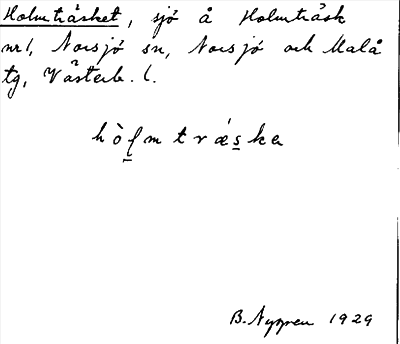 Holmträsket, sjö å Holmträsk
nr 1, Norsjö sn, Norsjö och Malå
tg, Västerb. l.
hòl̠mtrǽs̠ka
B. Nygren 1929